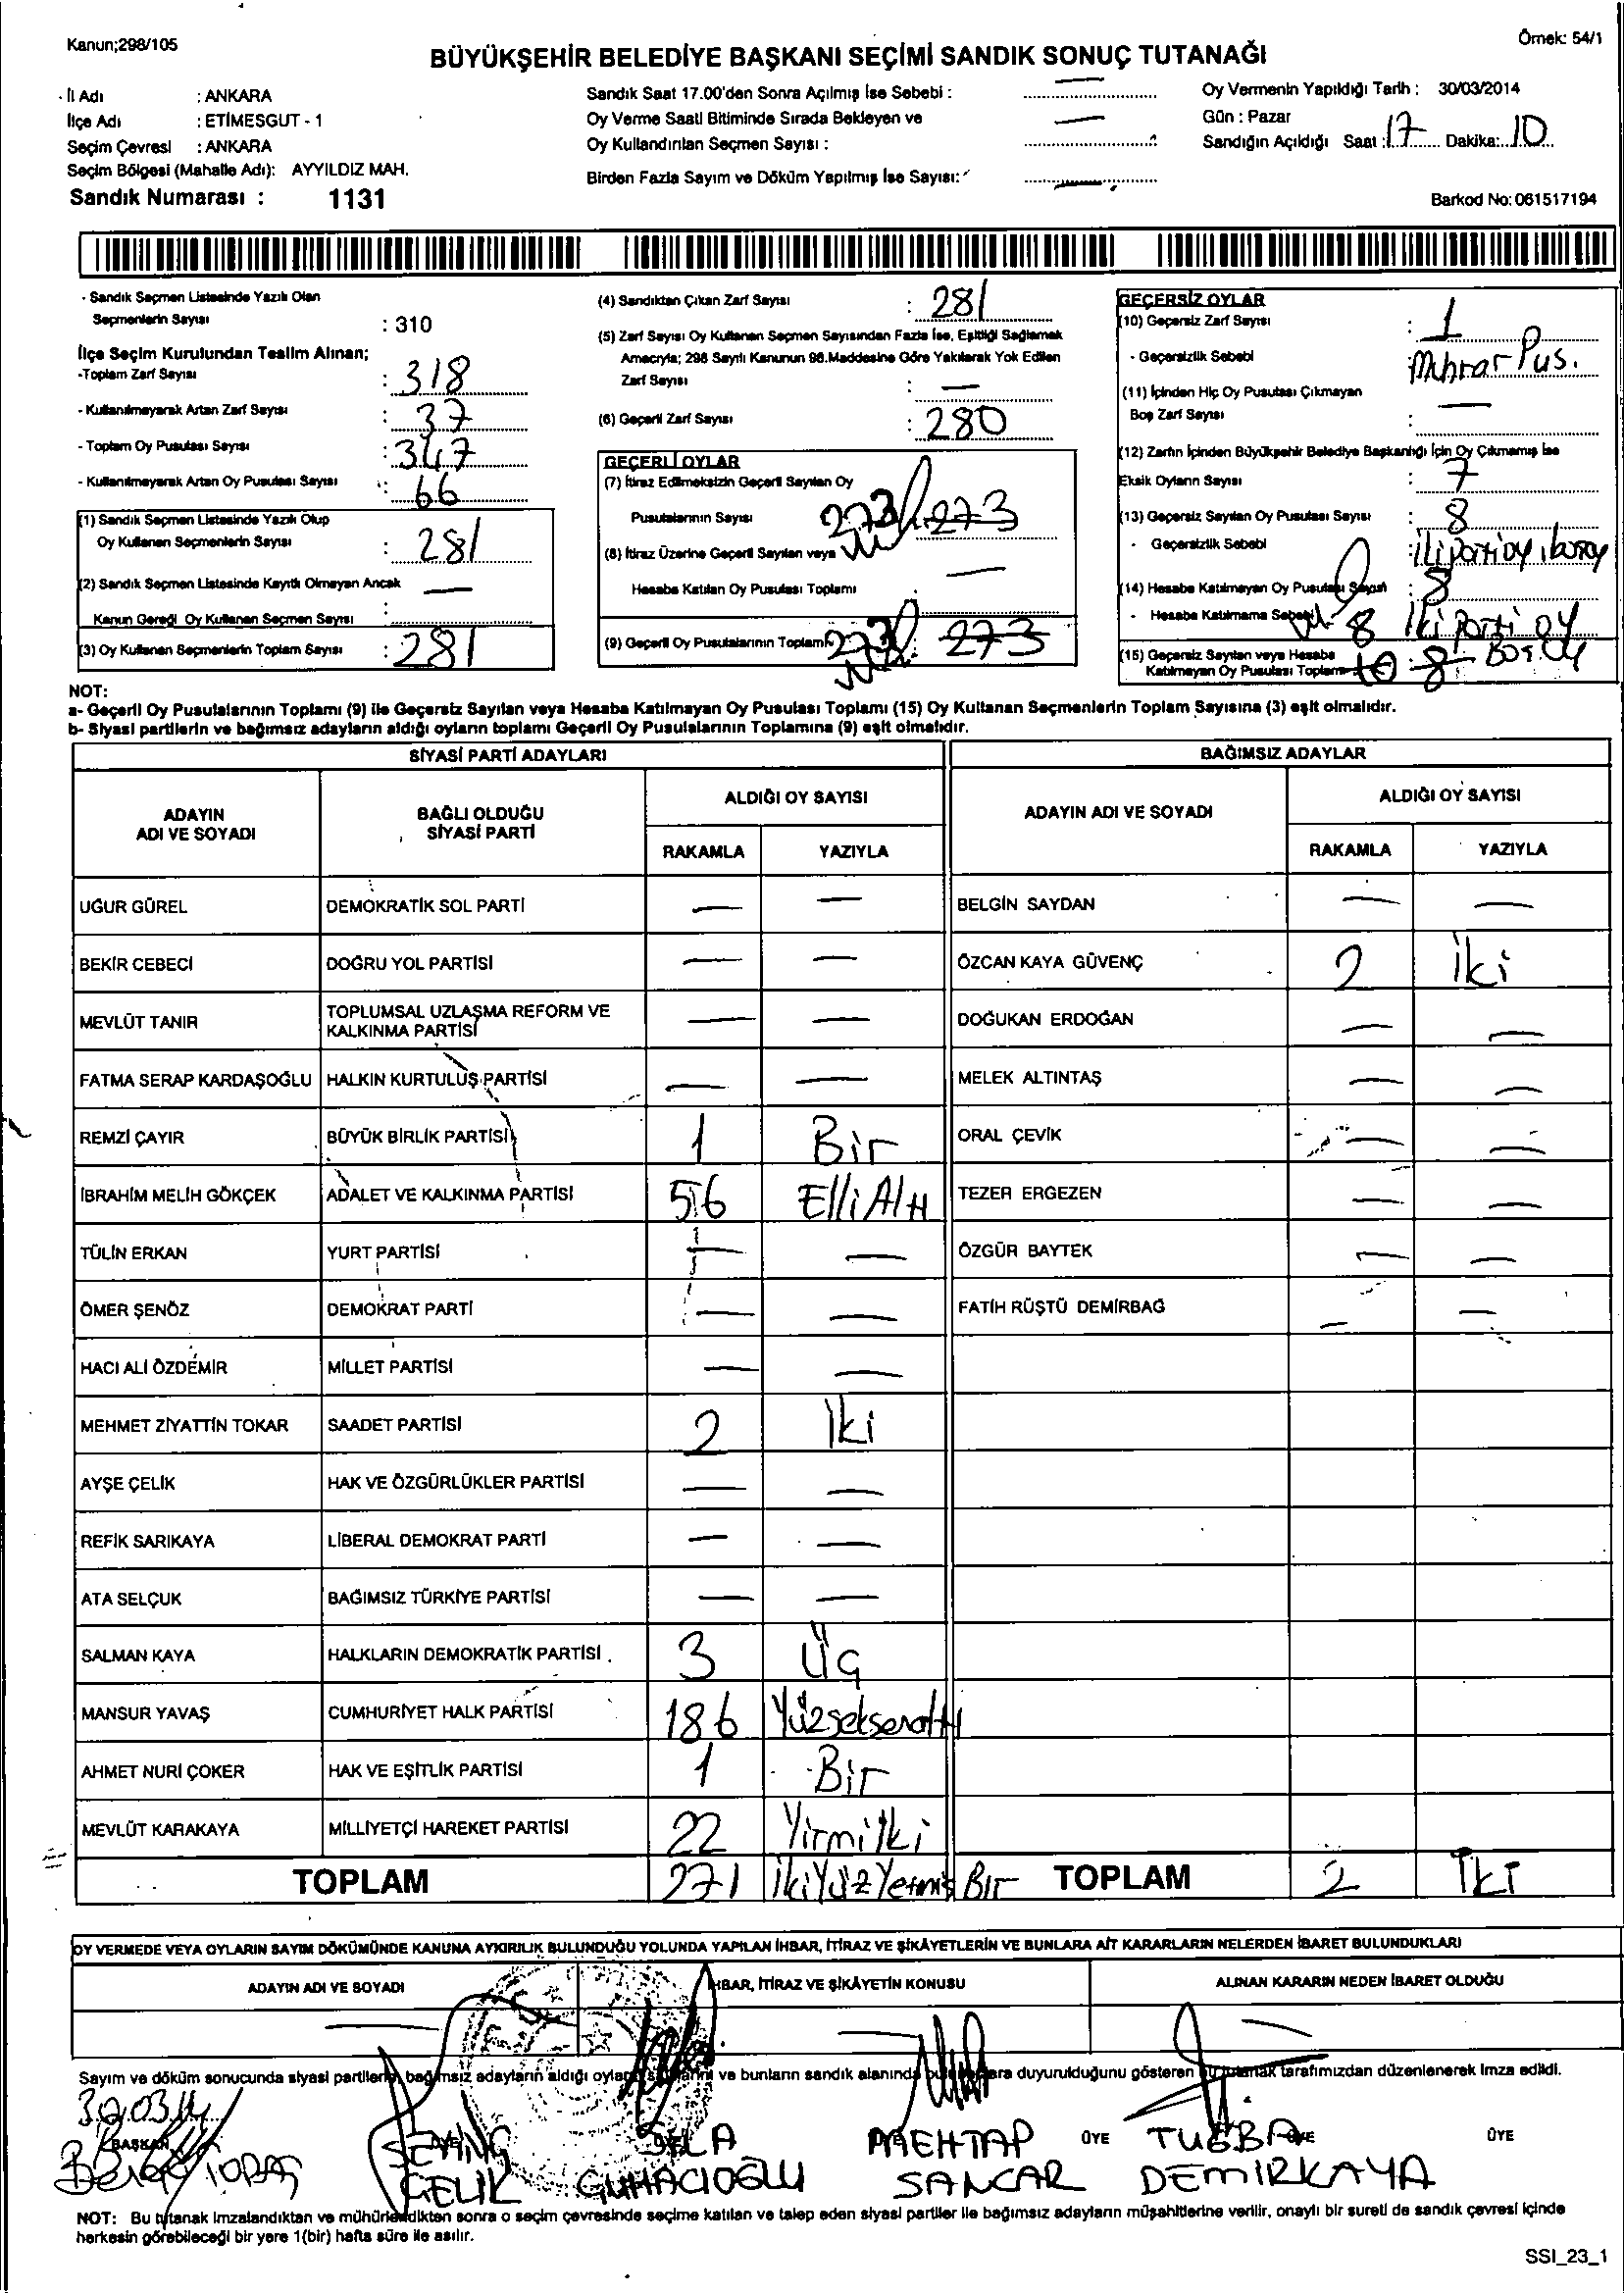 Kanun;298/105
Örnek: 54/1
BÜYÜKŞEHİR BELEDİYE BAŞKANI SEÇİMİ SANDIK SONUÇ TUTANAĞI
İl Adı : ANKARA
İlçe Adı : ETİMESGUT - 1
Seçim Çevresi : ANKARA
Seçim Bölgesi (Mahalle Adı): AYYILDIZ MAH.
Sandık Numarası : 1131
Sandık Saat 17.00'den Sonra Açılmış İse Sebebi : —
Oy Verme Saati Bitiminde Sırada Bekleyen ve
Oy Kullandırılan Seçmen Sayısı : —
Birden Fazla Sayım ve Döküm Yapılmış İse Sayısı: —
Oy Vermenin Yapıldığı Tarih : 30/03/2014
Gün : Pazar
Sandığın Açıldığı Saat : 17 Dakika: 10
Barkod No: 061517194
- Sandık Seçmen Listesinde Yazılı Olan
Seçmenlerin Sayısı : 310
İlçe Seçim Kurulundan Teslim Alınan;
-Toplam Zarf Sayısı : 318
- Kullanılmayarak Artan Zarf Sayısı : 37
- Toplam Oy Pusulası Sayısı : 347
- Kullanılmayarak Artan Oy Pusulası Sayısı : 66
(1) Sandık Seçmen Listesinde Yazılı Olup
Oy Kullanan Seçmenlerin Sayısı : 281
(2) Sandık Seçmen Listesinde Kayıtlı Olmayan Ancak
Kanun Gereği Oy Kullanan Seçmen Sayısı : —
(3) Oy Kullanan Seçmenlerin Toplam Sayısı : 281
(4) Sandıktan Çıkan Zarf Sayısı : 281
(5) Zarf Sayısı Oy Kullanan Seçmen Sayısından Fazla İse, Eşitliği Sağlamak
Amacıyla; 298 Sayılı Kanunun 98.Maddesine Göre Yakılarak Yok Edilen
Zarf Sayısı : —
(6) Geçerli Zarf Sayısı : 280
GEÇERLİ OYLAR
(7) İtiraz Edilmeksizin Geçerli Sayılan Oy
Pusulalarının Sayısı 273 273
(8) İtiraz Üzerine Geçerli Sayılan veya
Hesaba Katılan Oy Pusulası Toplamı —
(9) Geçerli Oy Pusulalarının Toplamı 273 273
GEÇERSİZ OYLAR
(10) Geçersiz Zarf Sayısı : 1
- Geçersizlik Sebebi Pus.
(11) İçinden Hiç Oy Pusulası Çıkmayan
Boş Zarf Sayısı : —
(12) Zarfın İçinden Büyükşehir Belediye Başkanlığı İçin Oy Çıkmamış İse
Eksik Oyların Sayısı : 7
(13) Geçersiz Sayılan Oy Pusulası Sayısı : 8
- Geçersizlik Sebebi :
(14) Hesaba Katılmayan Oy Pusulası Sayısı : 8
- Hesaba Katılmama Sebebi 8 İki parti oy
(15) Geçersiz Sayılan veya Hesaba
Katılmayan Oy Pusulası Toplamı 8 Boş Oy
NOT:
a- Geçerli Oy Pusulalarının Toplamı (9) ile Geçersiz Sayılan veya Hesaba Katılmayan Oy Pusulası Toplamı (15) Oy Kullanan Seçmenlerin Toplam Sayısına (3) eşit olmalıdır.
b- Siyasi partilerin ve bağımsız adayların aldığı oyların toplamı Geçerli Oy Pusulalarının Toplamına (9) eşit olmalıdır.
SİYASİ PARTİ ADAYLARI BAĞIMSIZ ADAYLAR
ADAYIN ADI VE SOYADI BAĞLI OLDUĞU SİYASİ PARTİ ALDIĞI OY SAYISI ADAYIN ADI VE SOYADI ALDIĞI OY SAYISI
RAKAMLA YAZIYLA RAKAMLA YAZIYLA
UĞUR GÜREL DEMOKRATİK SOL PARTİ — — BELGİN SAYDAN — —
BEKİR CEBECİ DOĞRU YOL PARTİSİ — — ÖZCAN KAYA GÜVENÇ 2 İki
MEVLÜT TANIR TOPLUMSAL UZLAŞMA REFORM VE KALKINMA PARTİSİ — — DOĞUKAN ERDOĞAN — —
FATMA SERAP KARDAŞOĞLU HALKIN KURTULUŞ PARTİSİ — — MELEK ALTINTAŞ — —
REMZİ ÇAYIR BÜYÜK BİRLİK PARTİSİ 1 Bir ORAL ÇEVİK — —
İBRAHİM MELİH GÖKÇEK ADALET VE KALKINMA PARTİSİ 56 Elli Altı TEZER ERGEZEN — —
TÜLİN ERKAN YURT PARTİSİ — — ÖZGÜR BAYTEK — —
ÖMER ŞENÖZ DEMOKRAT PARTİ — — FATİH RÜŞTÜ DEMİRBAĞ — —
HACI ALİ ÖZDEMİR MİLLET PARTİSİ — —
MEHMET ZİYATTİN TOKAR SAADET PARTİSİ 2 İki
AYŞE ÇELİK HAK VE ÖZGÜRLÜKLER PARTİSİ — —
REFİK SARIKAYA LİBERAL DEMOKRAT PARTİ — —
ATA SELÇUK BAĞIMSIZ TÜRKİYE PARTİSİ — —
SALMAN KAYA HALKLARIN DEMOKRATİK PARTİSİ 3 Üç
MANSUR YAVAŞ CUMHURİYET HALK PARTİSİ 186 Yüzseksenaltı
AHMET NURİ ÇOKER HAK VE EŞİTLİK PARTİSİ 1 Bir
MEVLÜT KARAKAYA MİLLİYETÇİ HAREKET PARTİSİ 22 Yirmi İki
TOPLAM 271 İkiYüzYetmiş Bir TOPLAM 2 İki
OY VERMEDE VEYA OYLARIN SAYIM DÖKÜMÜNDE KANUNA AYKIRILIK BULUNDUĞU YOLUNDA YAPILAN İHBAR, İTİRAZ VE ŞİKÂYETLERİN VE BUNLARA AİT KARARLARIN NELERDEN İBARET BULUNDUKLARI
ADAYIN ADI VE SOYADI İHBAR, İTİRAZ VE ŞİKÂYETİN KONUSU ALINAN KARARIN NEDEN İBARET OLDUĞU
— — —
Sayım ve döküm sonucunda siyasi partilerin, bağımsız adayların aldığı oyların ve bunların sandık alanında duyurulduğunu gösteren bu tutanak tarafımızdan düzenlenerek imza edildi.
30.03.14
BAŞKAN ÜYE ÜYE ÜYE
SEVİNÇ ÇELİK
MEHTAP SANCAR
TUĞBA DEMİRKAYA
NOT: Bu tutanak imzalandıktan ve mühürlendikten sonra o seçim çevresinde seçime katılan ve talep eden siyasi partiler ile bağımsız adayların müşahitlerine verilir, onaylı bir sureti de sandık çevresi içinde
herkesin görebileceği bir yere 1(bir) hafta süre ile asılır.
SSI_23_1